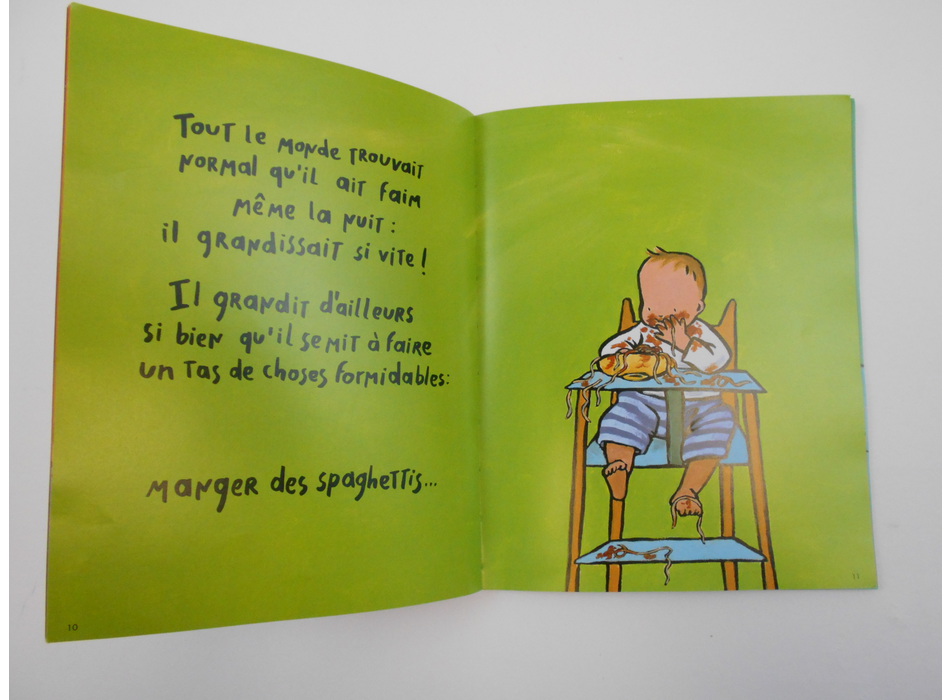 Tout le monde trouvait
normal qu'il ait faim
même la nuit :
il grandissait si vite !
Il grandit d'ailleurs
si bien qu'il se mit à faire
un tas de choses formidables :
manger des spaghettis...
10
11